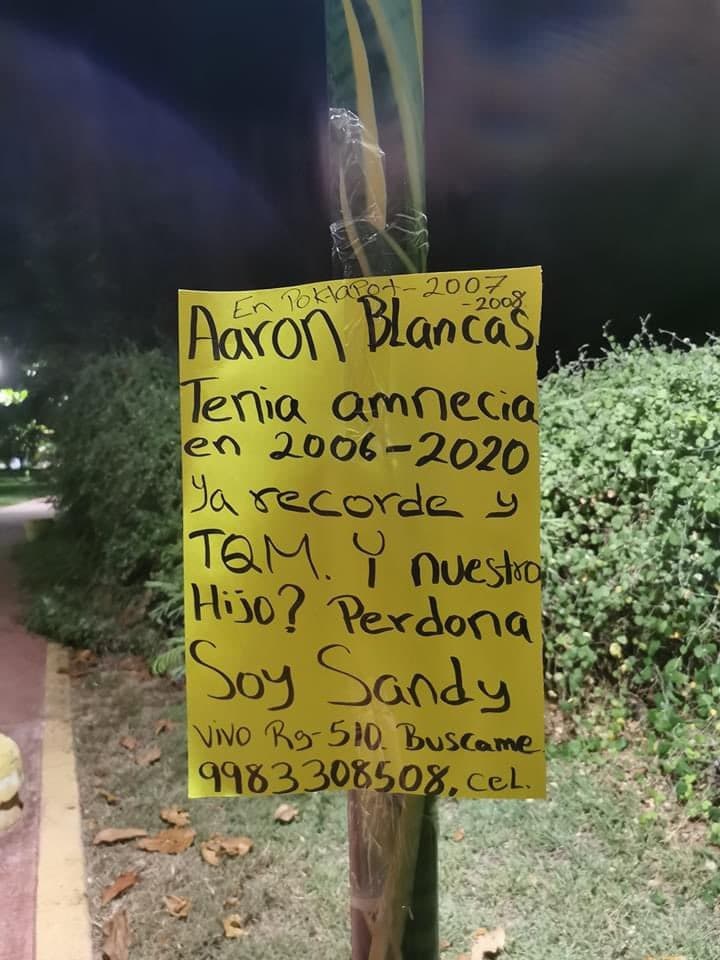 En Poktapot-2007
-2008
Aaron Blancas
Tenia amnecia
en 2006-2020
Ya recorde y
TQM. Y nuestro
Hijo? Perdona
Soy Sandy
vivo Rg-510. Buscame
9983308508, ceL.